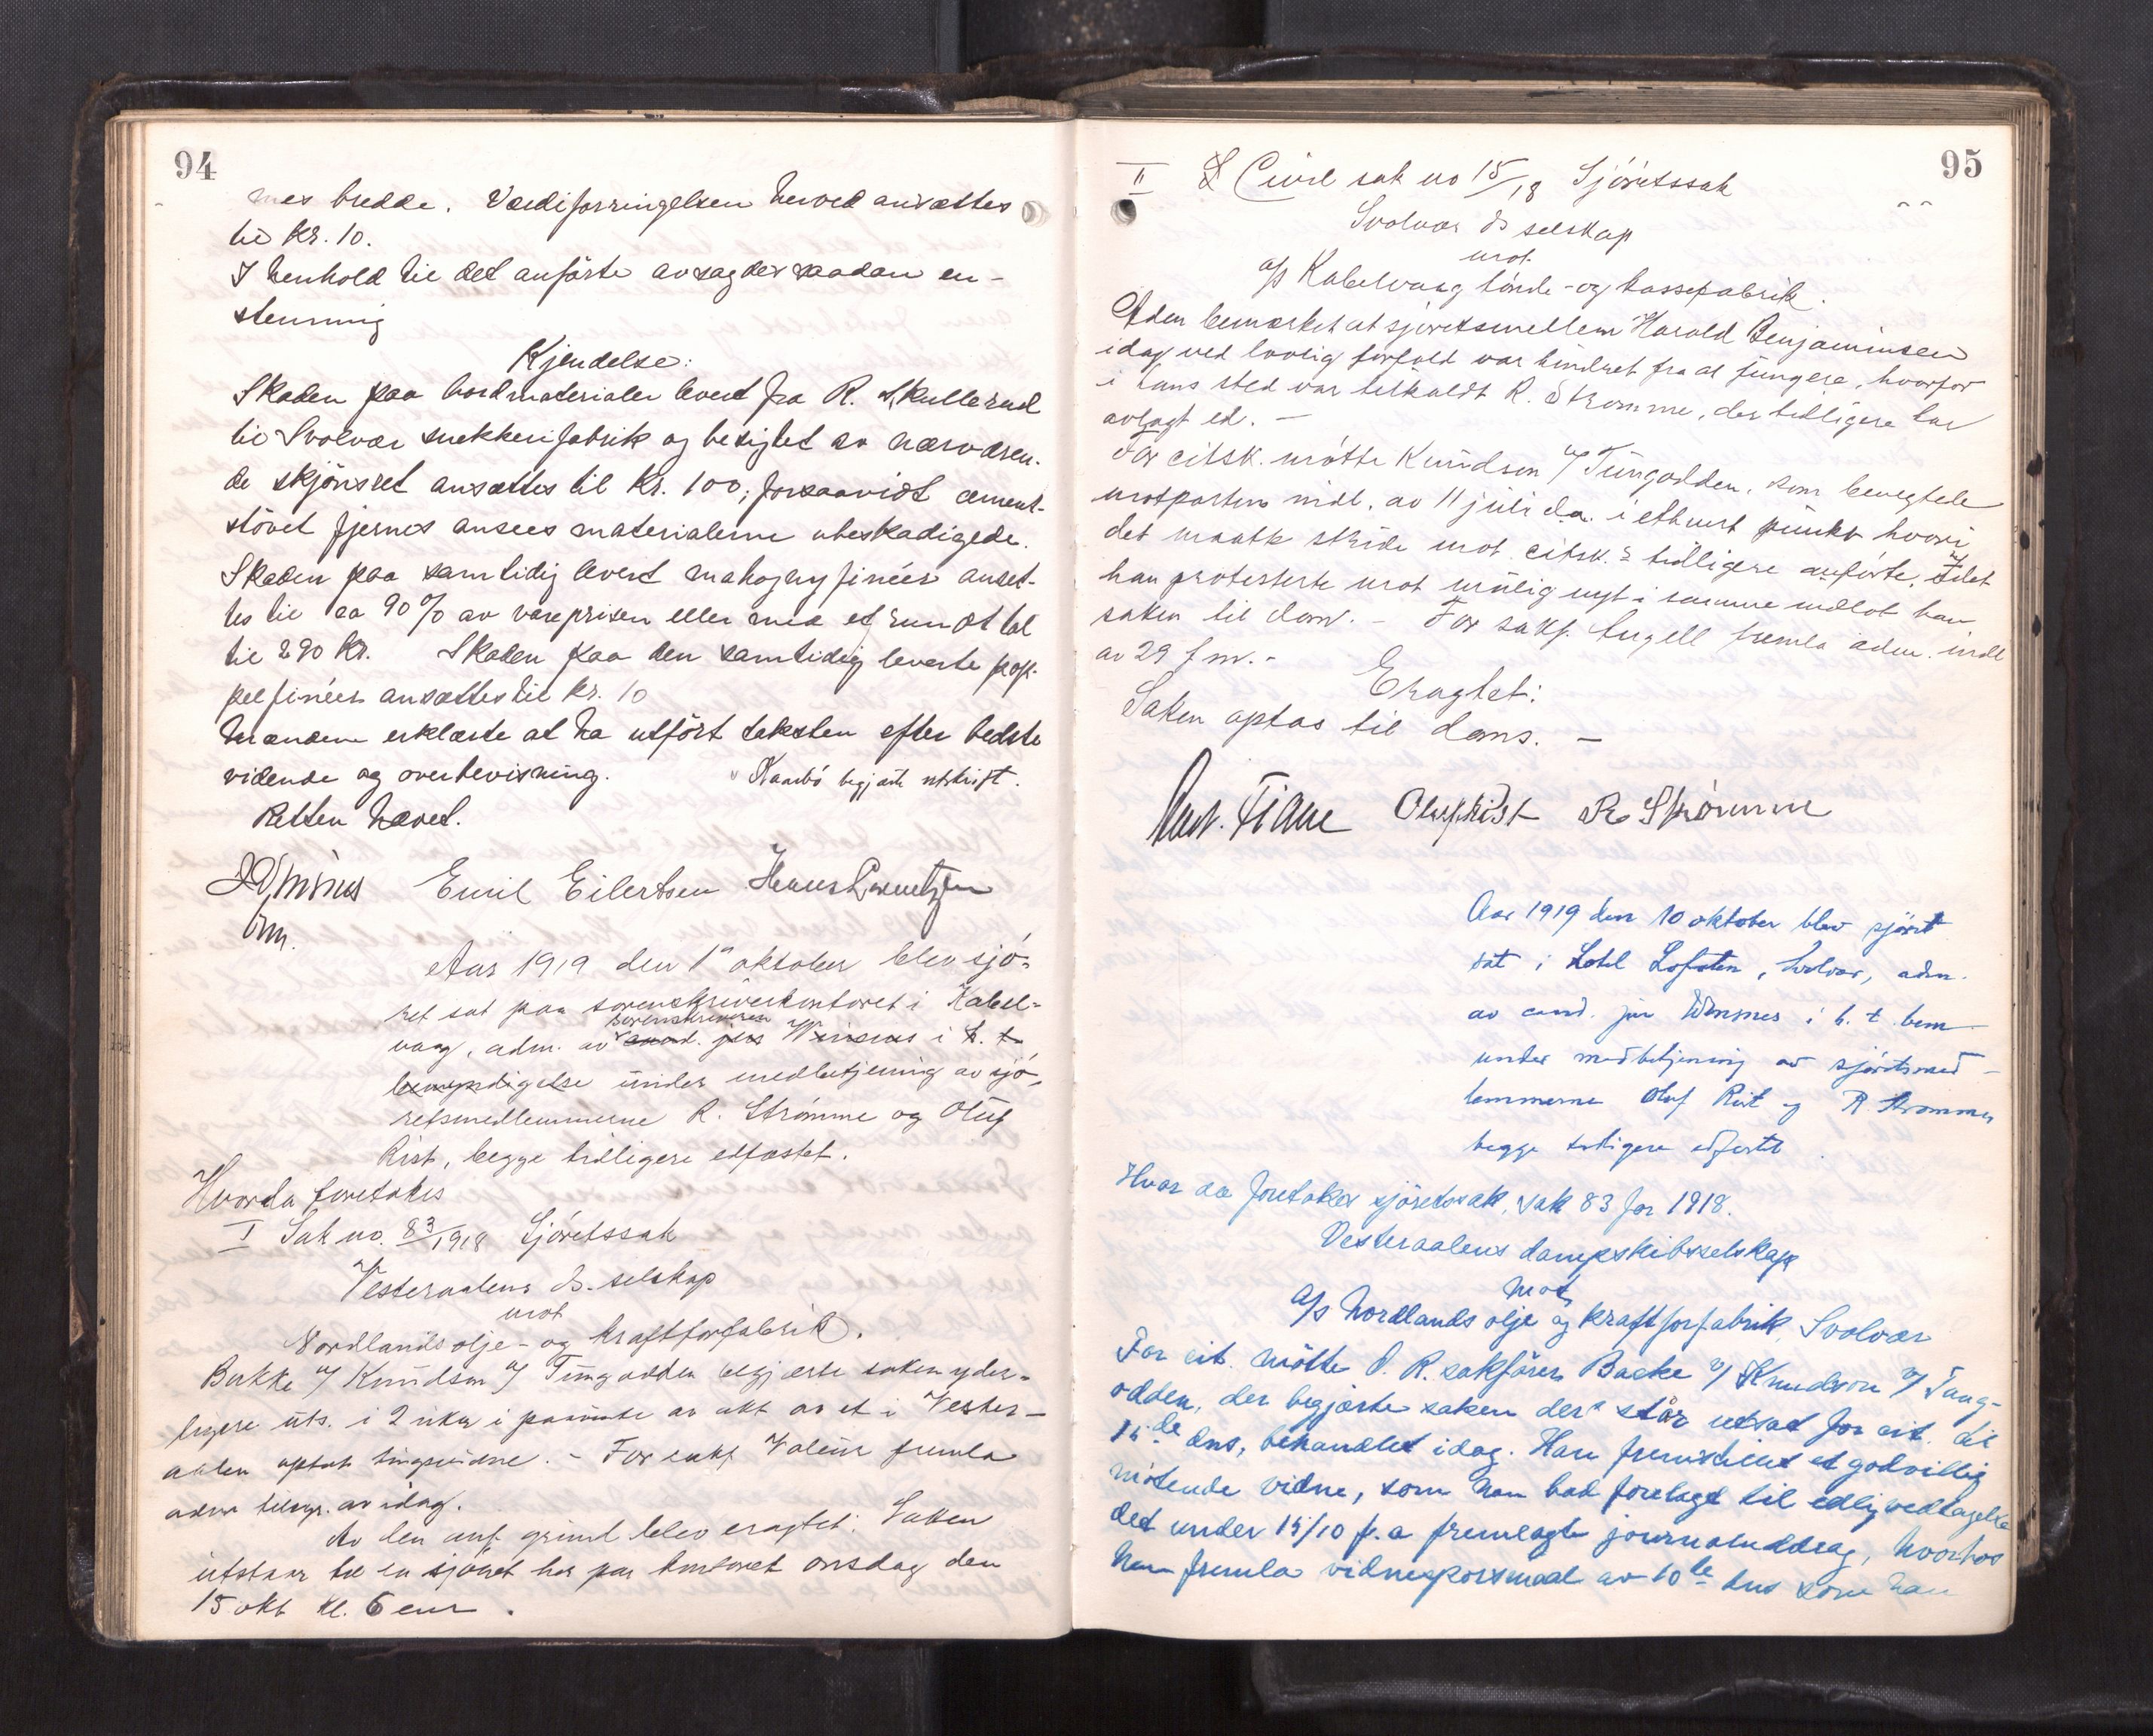 94
mes bredde. Værdiforringelsen herved ansættes
til kr. 10.
I henhold til det anførte avsagdes saadan en-
stemmig
Kjendelse:
Skaden paa bordmaterialer levert fra R. Skullerud
til Svolvær snekkerifabrik og besigtet av nærværen-
de skjønsret ansættes til kr. 100; forsaavidt cement-
støvet fjernes ansees materialerne ubeskadigede.
Skaden paa samtidig levert mahognyfinér anset-
tes til ca 90% av vareprisen eller med et rundt tal
til 290 kr. Skaden paa den samtidig leverte pop-
pelfinér ansættes til kr. 10
Mændene erklærte at ha utført taksten efter bedste
vidende og overbevisning. Kaarbø begjærte utskrift.
Retten hævet.
Emil Eilertsen Hans Lorentzen
Aar 1919 den 1ste oktober blev sjø-
ret sat paa sorenskriverkontoret i Kabel-
sorenskriveren
vaag, adm. av cand. jur Winsnes i h. t.
bemyndigelse under medbetjening av sjø-
retsmedlemmerne R. Strømme og Oluf
Rist, begge tidligere edfæstet.
Hvorda foretokes
I Sak no. 83/1918 Sjøretssak
Vesteraalens ds. selskap
mot
Nordlands olje- og kraftforfabrik.
Bakke o/ Knudson o/ Tungodden begjærte saken yder-
ligere uts. i 2 uker i paavente av akt av et i Vester-
aalen optat tingsvidne. - For sakf. fremla
adm tilsvar. av idag.
Av den anf. grund blev eragtet: Saken
utstaar til en sjøret her paa kontoret onsdag den
15 okt kl. 6 em.
95
II Civil sak no 15/18 Sjøretssak
Svolvær ds selskap
mot
a/s Kabelvaag tønde- og kassefabrik.
Adm bemærket at sjøretsmedlem Harald Benjaminsen
idag ved lovlig forfald var hindret fra at fungere, hvorfor
i hans sted var tilkaldt R. Strømme, der tidligere har
avlagt ed. -
For citsk. møtte Knudson o/ Tungodden, som benegtede
motpartens indl. av 11 juli d.a. i ethvert punkt hvori
det maatte stride mot citsk.s tidligere anførte. Idet
han protesterte mot mulig nyt i samme indlot han
saken til dom. - For sakf. fremla adm. indl
av 29 f.m. -
Eragtet:
Saken optas til doms. -
Oluf Rist R Strømme
Aar 1919 den 10 oktober blev sjøret
sat i Hotel Lofoten, Svolvær, adm.
av cand. jur Winsnes i h. t. bem
under medbetjening av sjøretsmed-
lemmerne Oluf Rist og R. Strømme
begge tidligere edfæstet.
Hvor da foretokes sjøretssak, sak 83 for 1918.
Vesteraalens dampskibsselskap
mot
a/s Nordlands olje og kraftforfabrik, Svolvær
For cit. møtte O. R. sakfører Backe o/ Knudson o/ Tung-
odden, der begjærte saken der står utsat for cit. til
15de dns, behandlet idag. Han fremstillet et godvillig
møtende vidne, som han bad forelagt til edlig vedtagelse
det under 15/10 f.a fremlagte journaluddrag, hvorhos
han fremla vidnespørsmaal av 10de dns som han